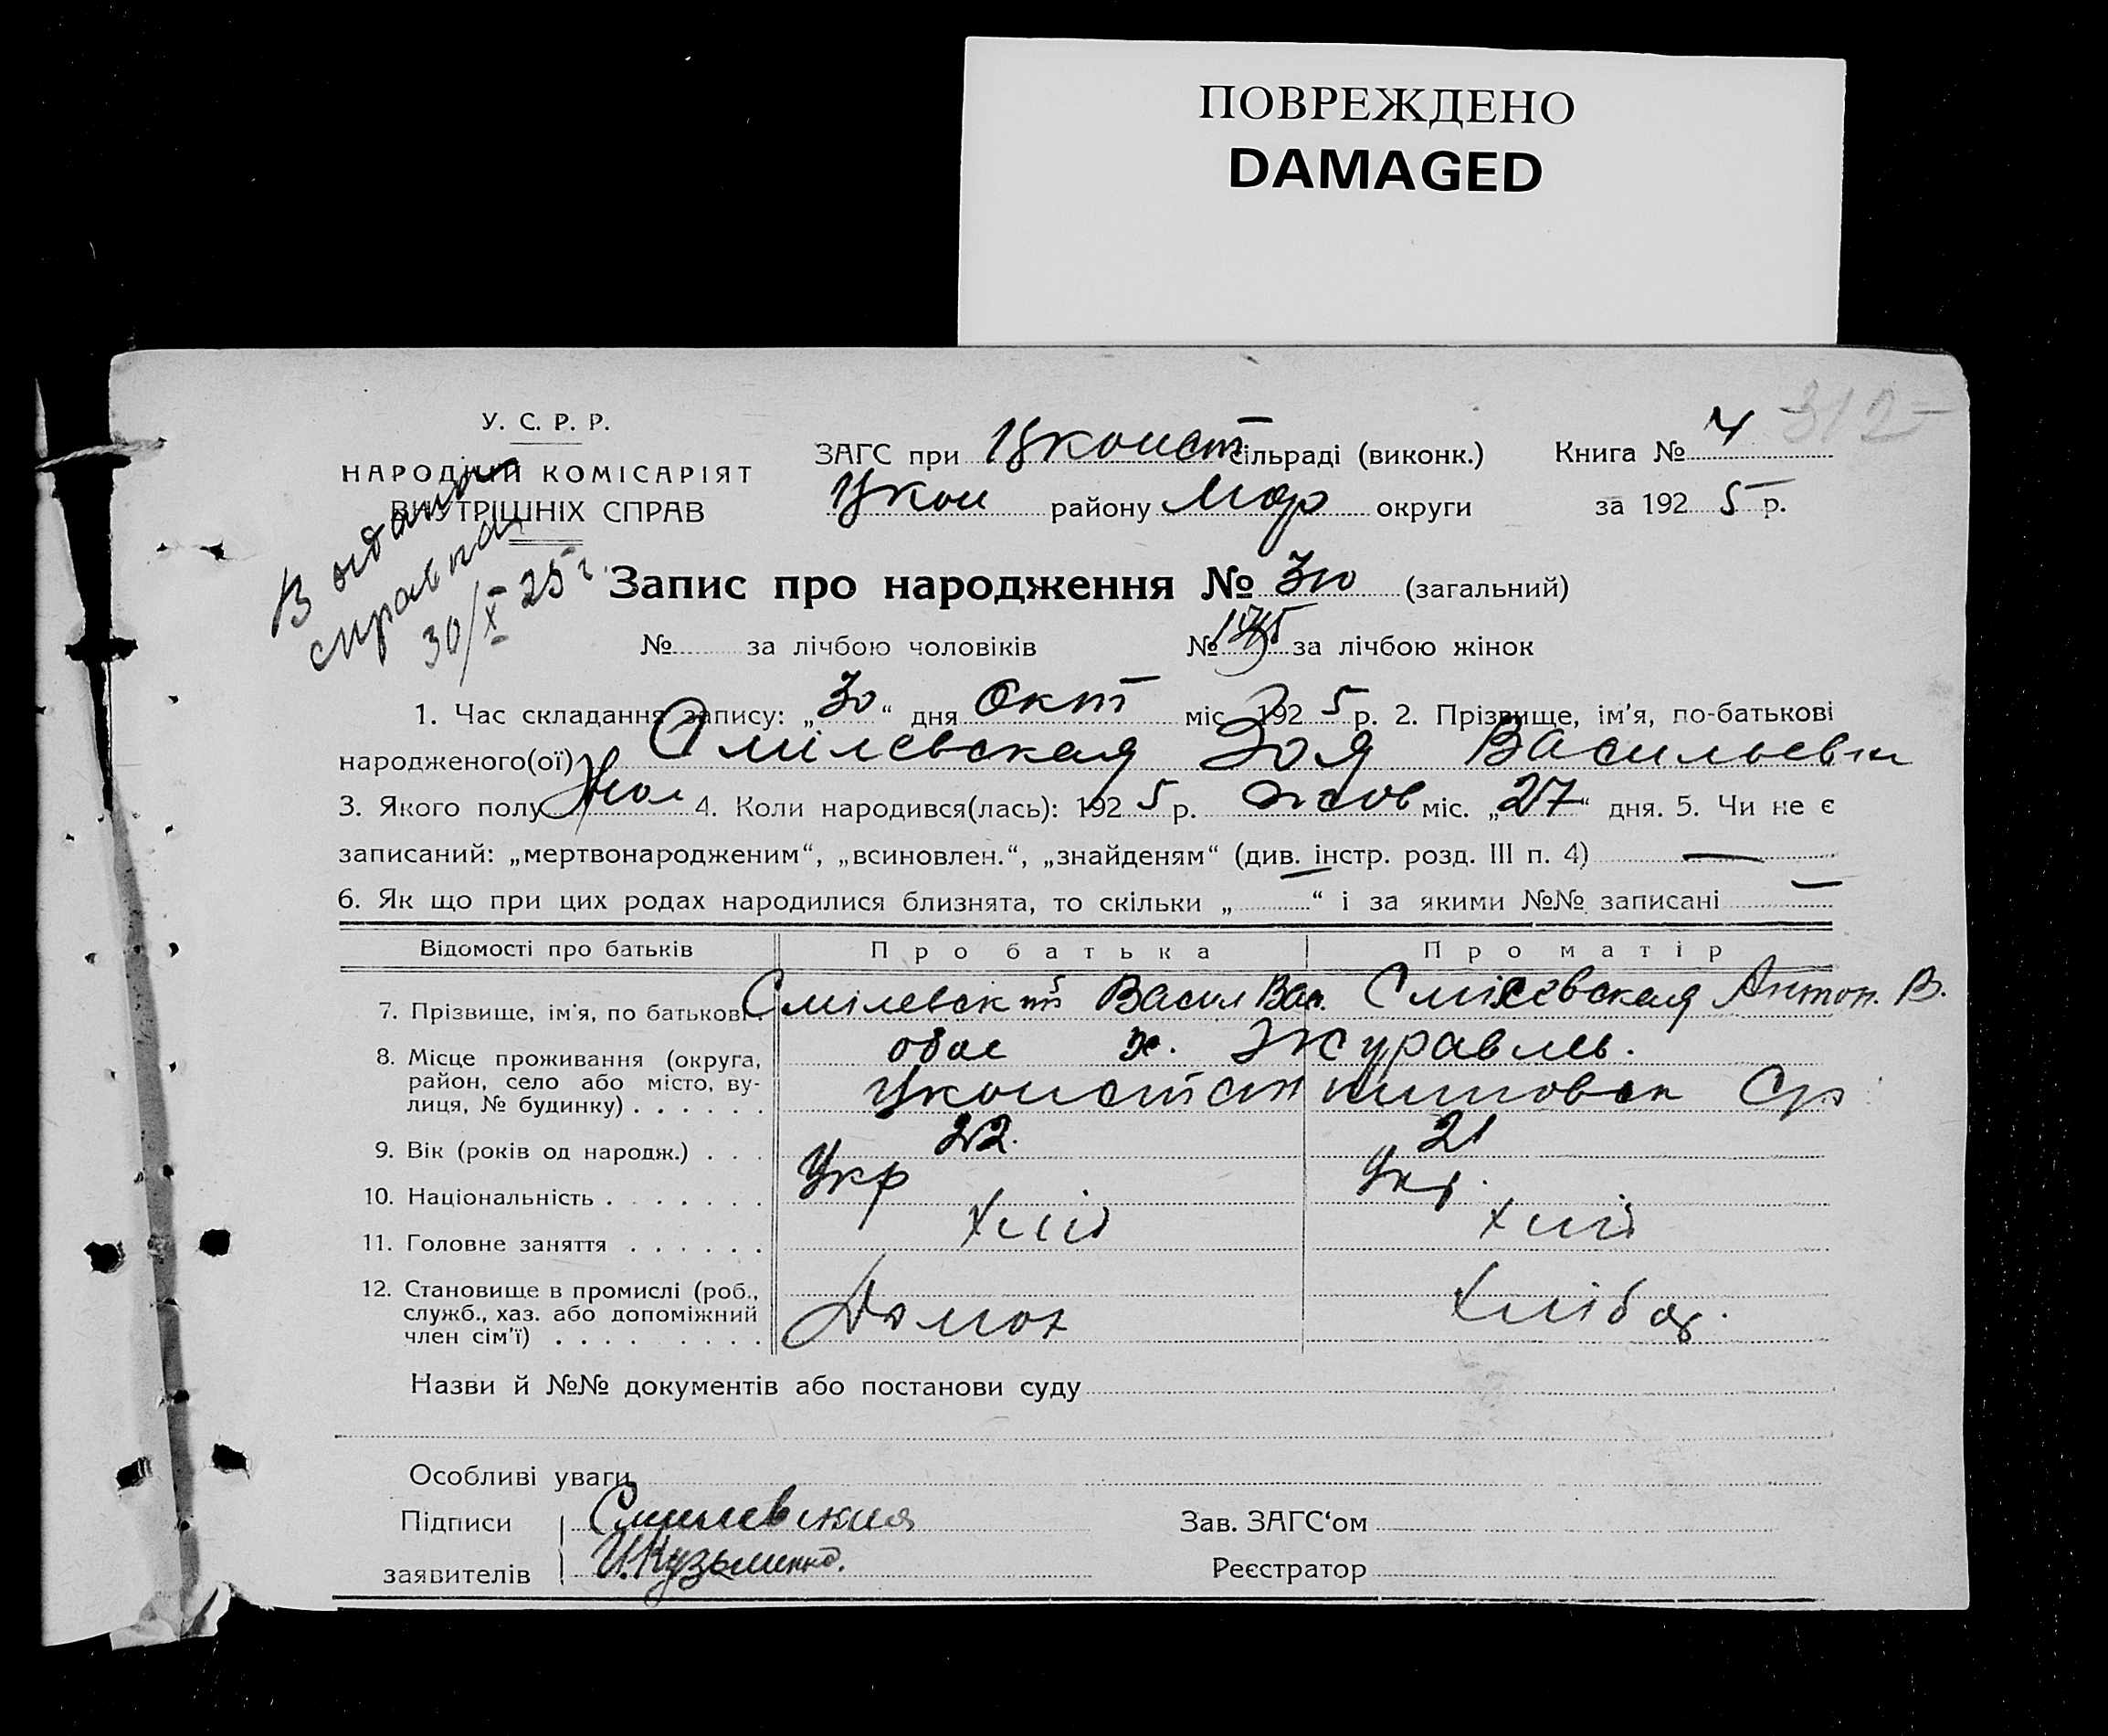 ПОВРЕЖДЕНО
DAMAGED
312
У. С. Р. Р.
НАРОДНІЙ КОМІСАРІЯТ
ВНУТРІШНІХ СПРАВ
ЗАГС при Цконст сільраді (виконк.) Книга № 4
Цкон району Мар округи за 1925 р.
Выдана
справка
30/X 25 г.
Запис про народження № 310 (загальний)
№ за лічбою чоловіків № за лічбою жінок
1. Час складання запису: „30“ дня Окт міс. 1925 р. 2. Прізвище, ім'я, по-батькові
народженого(ої) Смілевская Зоя Васильевн
3. Якого полу Жен 4. Коли народився(лась): 1925 р. жов міс. „27“ дня. 5. Чи не є
записаний: „мертвонародженим“, „всиновлен.“, „знайденям“ (див. інстр. розд. III п. 4) —
6. Як що при цих родах народилися близнята, то скільки „—“ і за якими №№ записані —
Відомості про батьків Про батька Про матір
7. Прізвище, ім'я, по батькові . Смілевский Васил Вас. Смілевская Антон. В.
8. Місце проживання (округа, обое х. Журавлев.
район, село або місто, ву-
лиця, № будинку) . . . . . . Цконстантиновск Ср
9. Вік (років од народж.) . . . 22. 21
10. Національність . . . . . . . Укр Укр.
11. Головне заняття . . . . . . Хліб Хліб
12. Становище в промислі (роб.,
служб., хаз. або допоміжний Домох Хлібор.
член сім'ї) . . . . . . . . .
Назви й №№ документів або постанови суду
Особливі уваги
Підписи Смилевская Зав. ЗАГС'ом
заявителів И.Кузьменко. Реєстратор